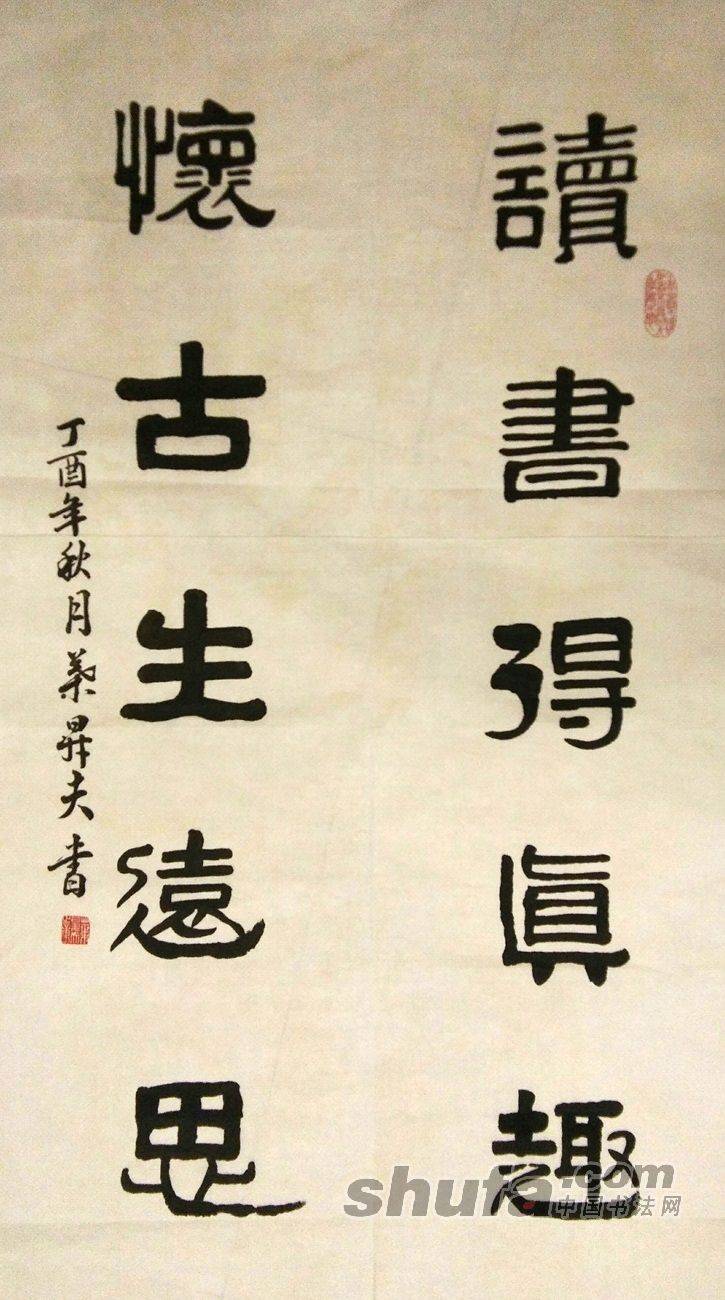 讀書得真趣
懷古生遠思
丁酉年秋月蔡昇夫書
shufa.com
中国书法网